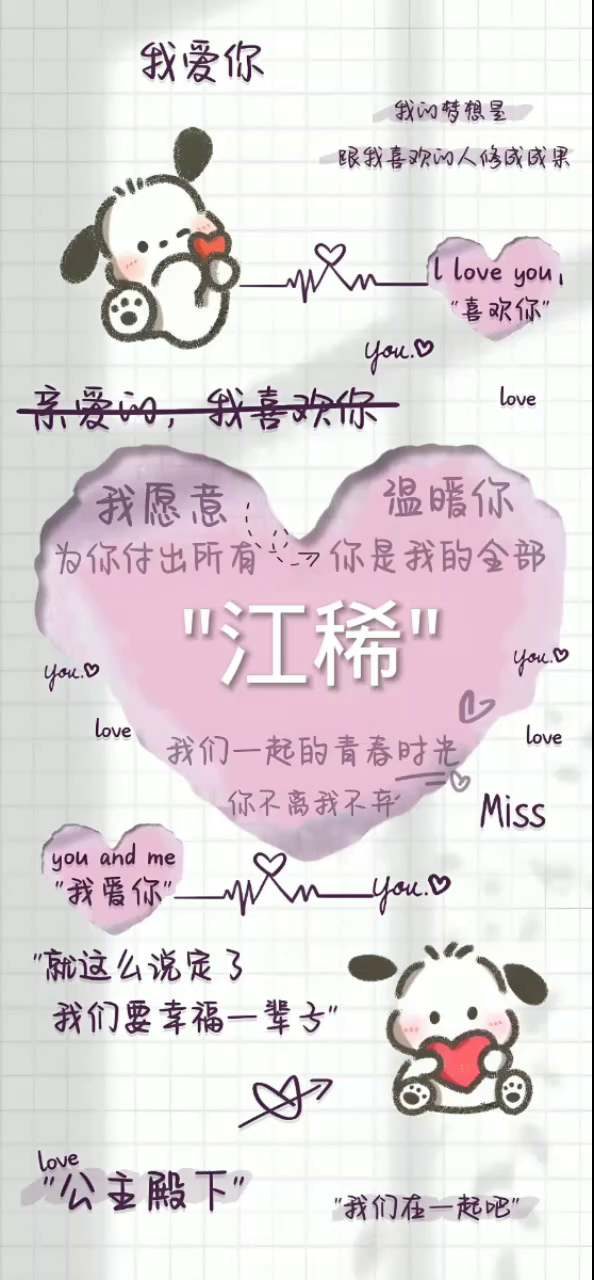 我爱你
我的梦想是
跟我喜欢的人修成成果
I love you,
"喜欢你"
you.
love
亲爱的，我喜欢你
我愿意
温暖你
为你付出所有
你是我的全部
"江稀"
you.
you.
love
love
我们一起的青春时光
你不离我不弃
Miss
you and me
"我爱你"
you.
"就这么说定了
我们要幸福一辈子"
love
"公主殿下"
"我们在一起吧"